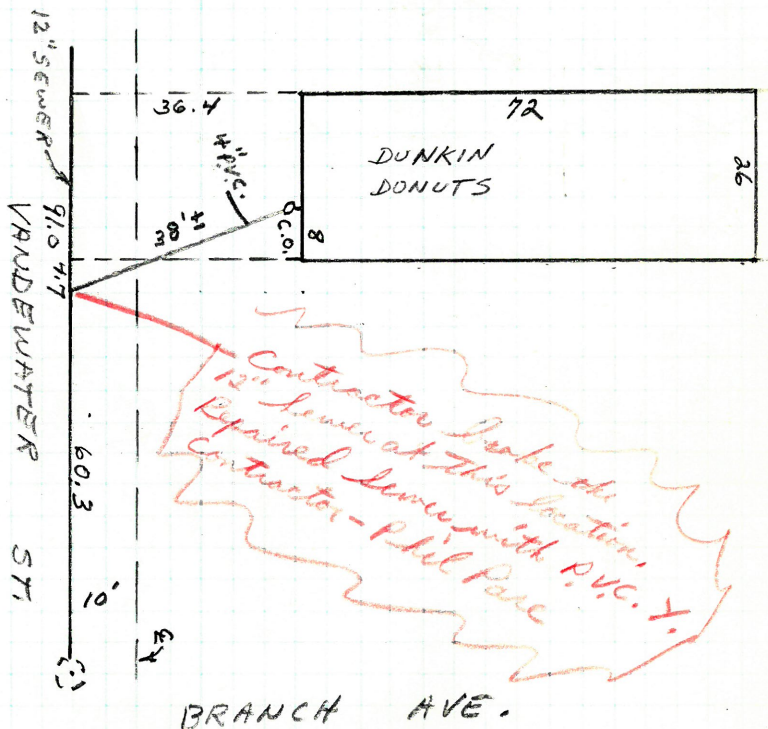 12" SEWER
36.4
72
DUNKIN
DONUTS
26
4" P.V.C.
38'±
C.O.
8
91.0
4.7
VANDEWATER ST
60.3
10'
Contractor broke
12" Sewer at this location.
Repaired Sewer with P.V.C. Y.
Contractor - Phil Pare
BRANCH AVE.